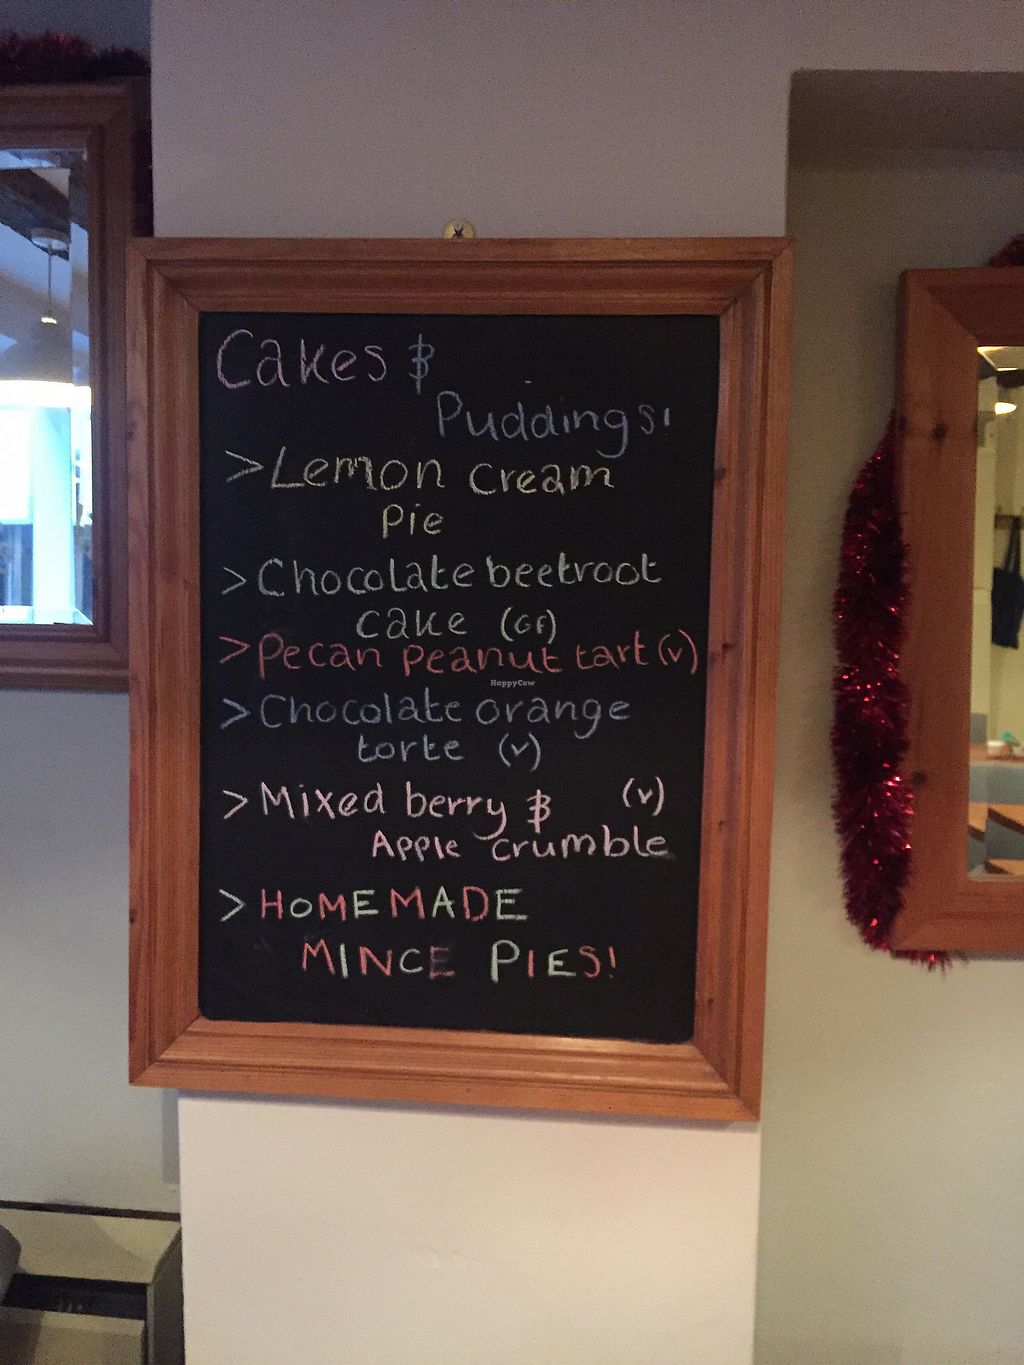 Cakes &
Puddings!
> Lemon cream
Pie
> Chocolate beetroot
cake (GF)
> Pecan peanut tart (v)
HappyCow
> Chocolate orange
torte (v)
> Mixed berry & (v)
Apple crumble
> HOMEMADE
MINCE PIES!